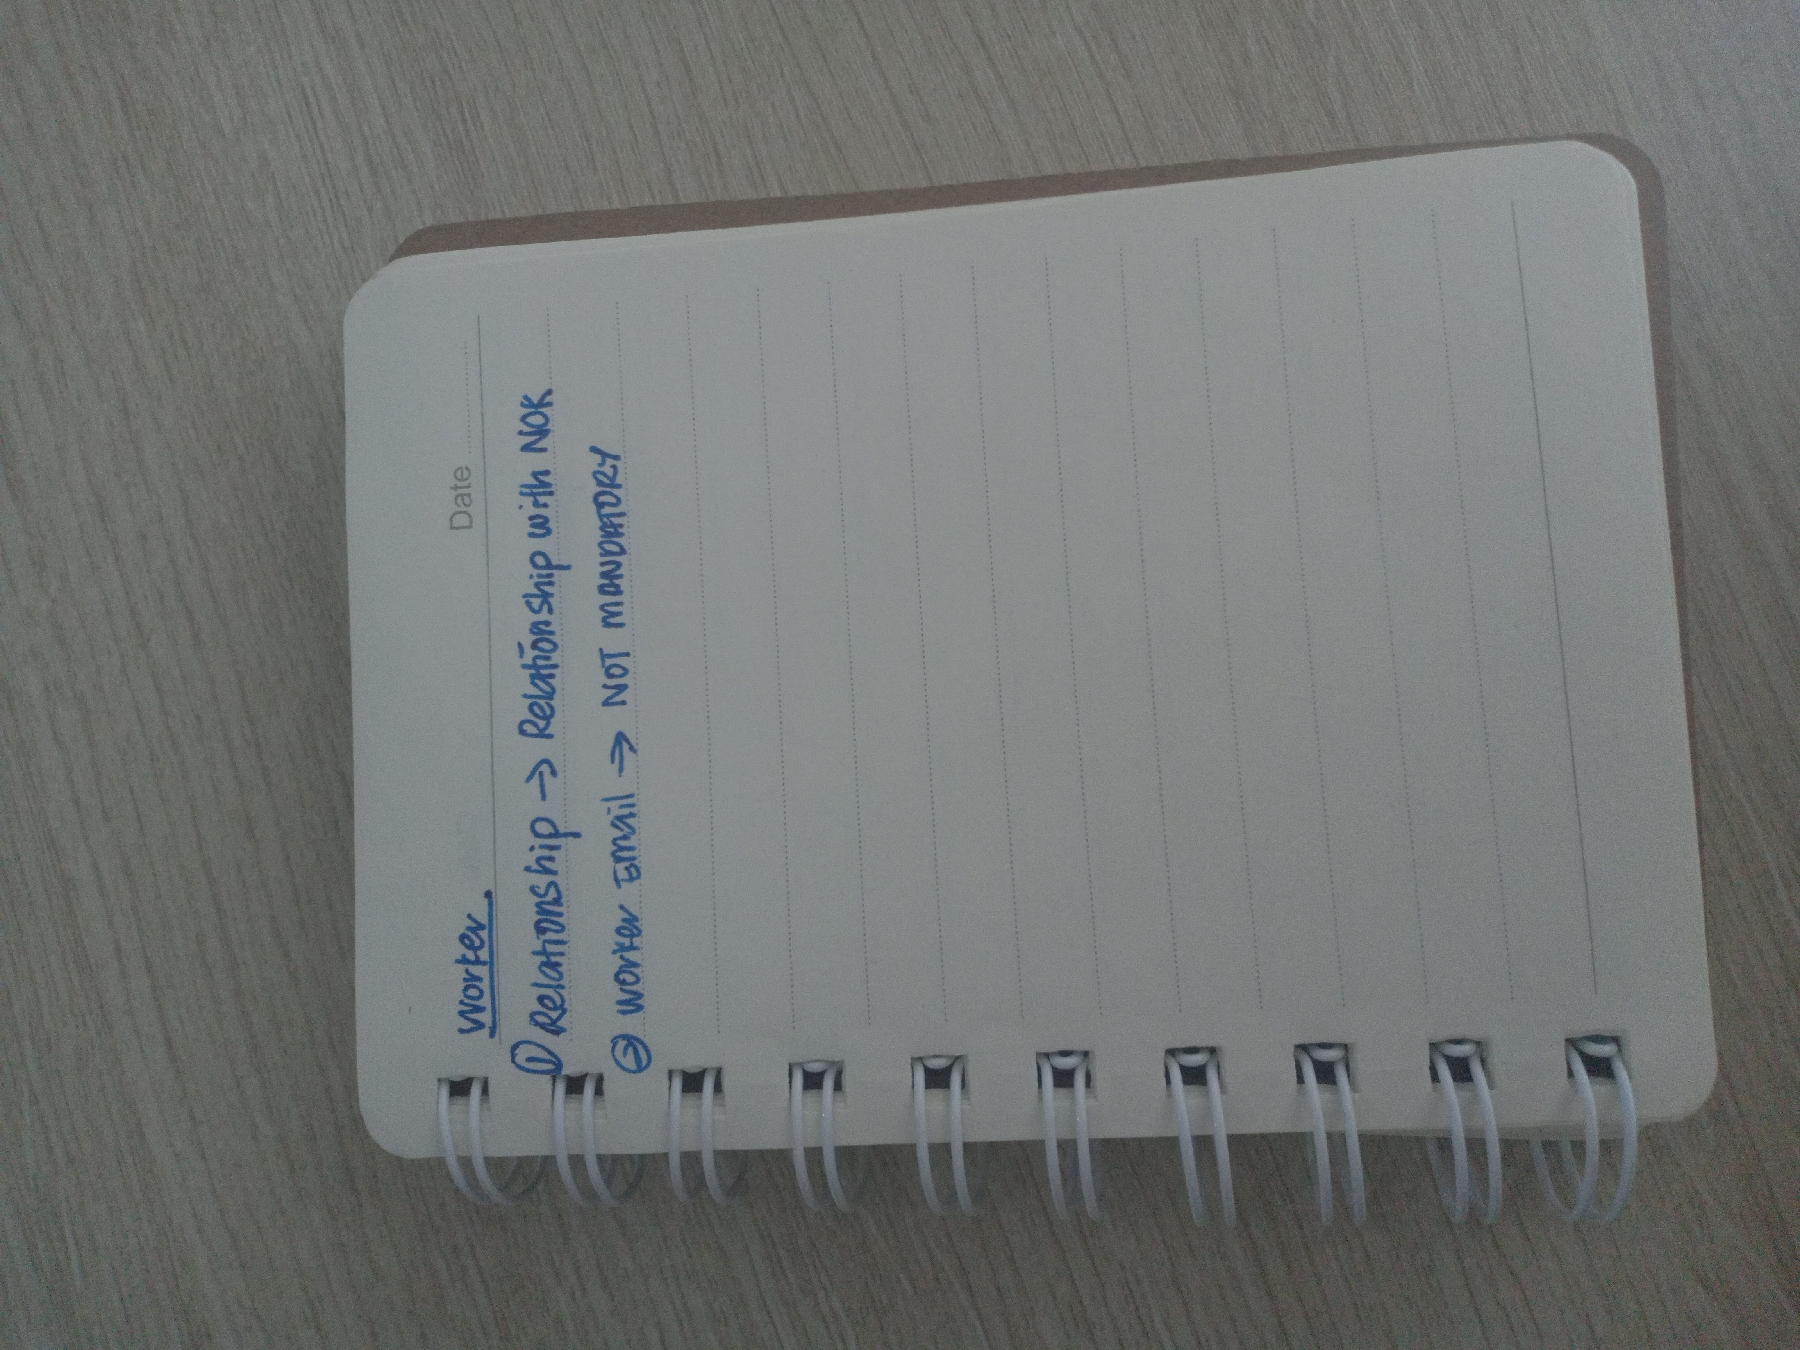 Worker. Date
① Relationship → Relationship with NOK
② Worker Email → NOT MANDATORY